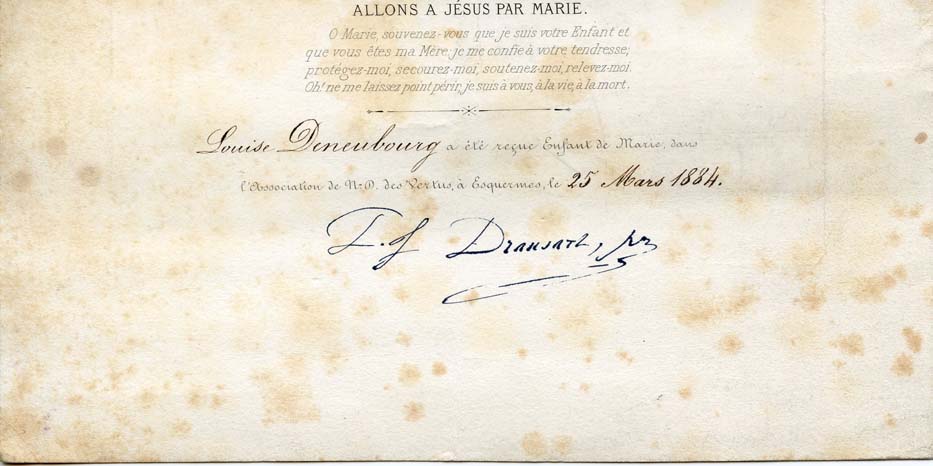 ALLONS A JÉSUS PAR MARIE.
O Marie, souvenez-vous que je suis votre Enfant et
que vous êtes ma Mère; je me confie à votre tendresse;
protégez-moi, secourez-moi, soutenez-moi, relevez-moi.
Oh! ne me laissez point périr, je suis à vous, à la vie, à la mort.
Louise Deneubourg a été reçue Enfant de Marie, dans
l'Association de N-D. des Vertus, à Esquermes, le 25 Mars 1884.